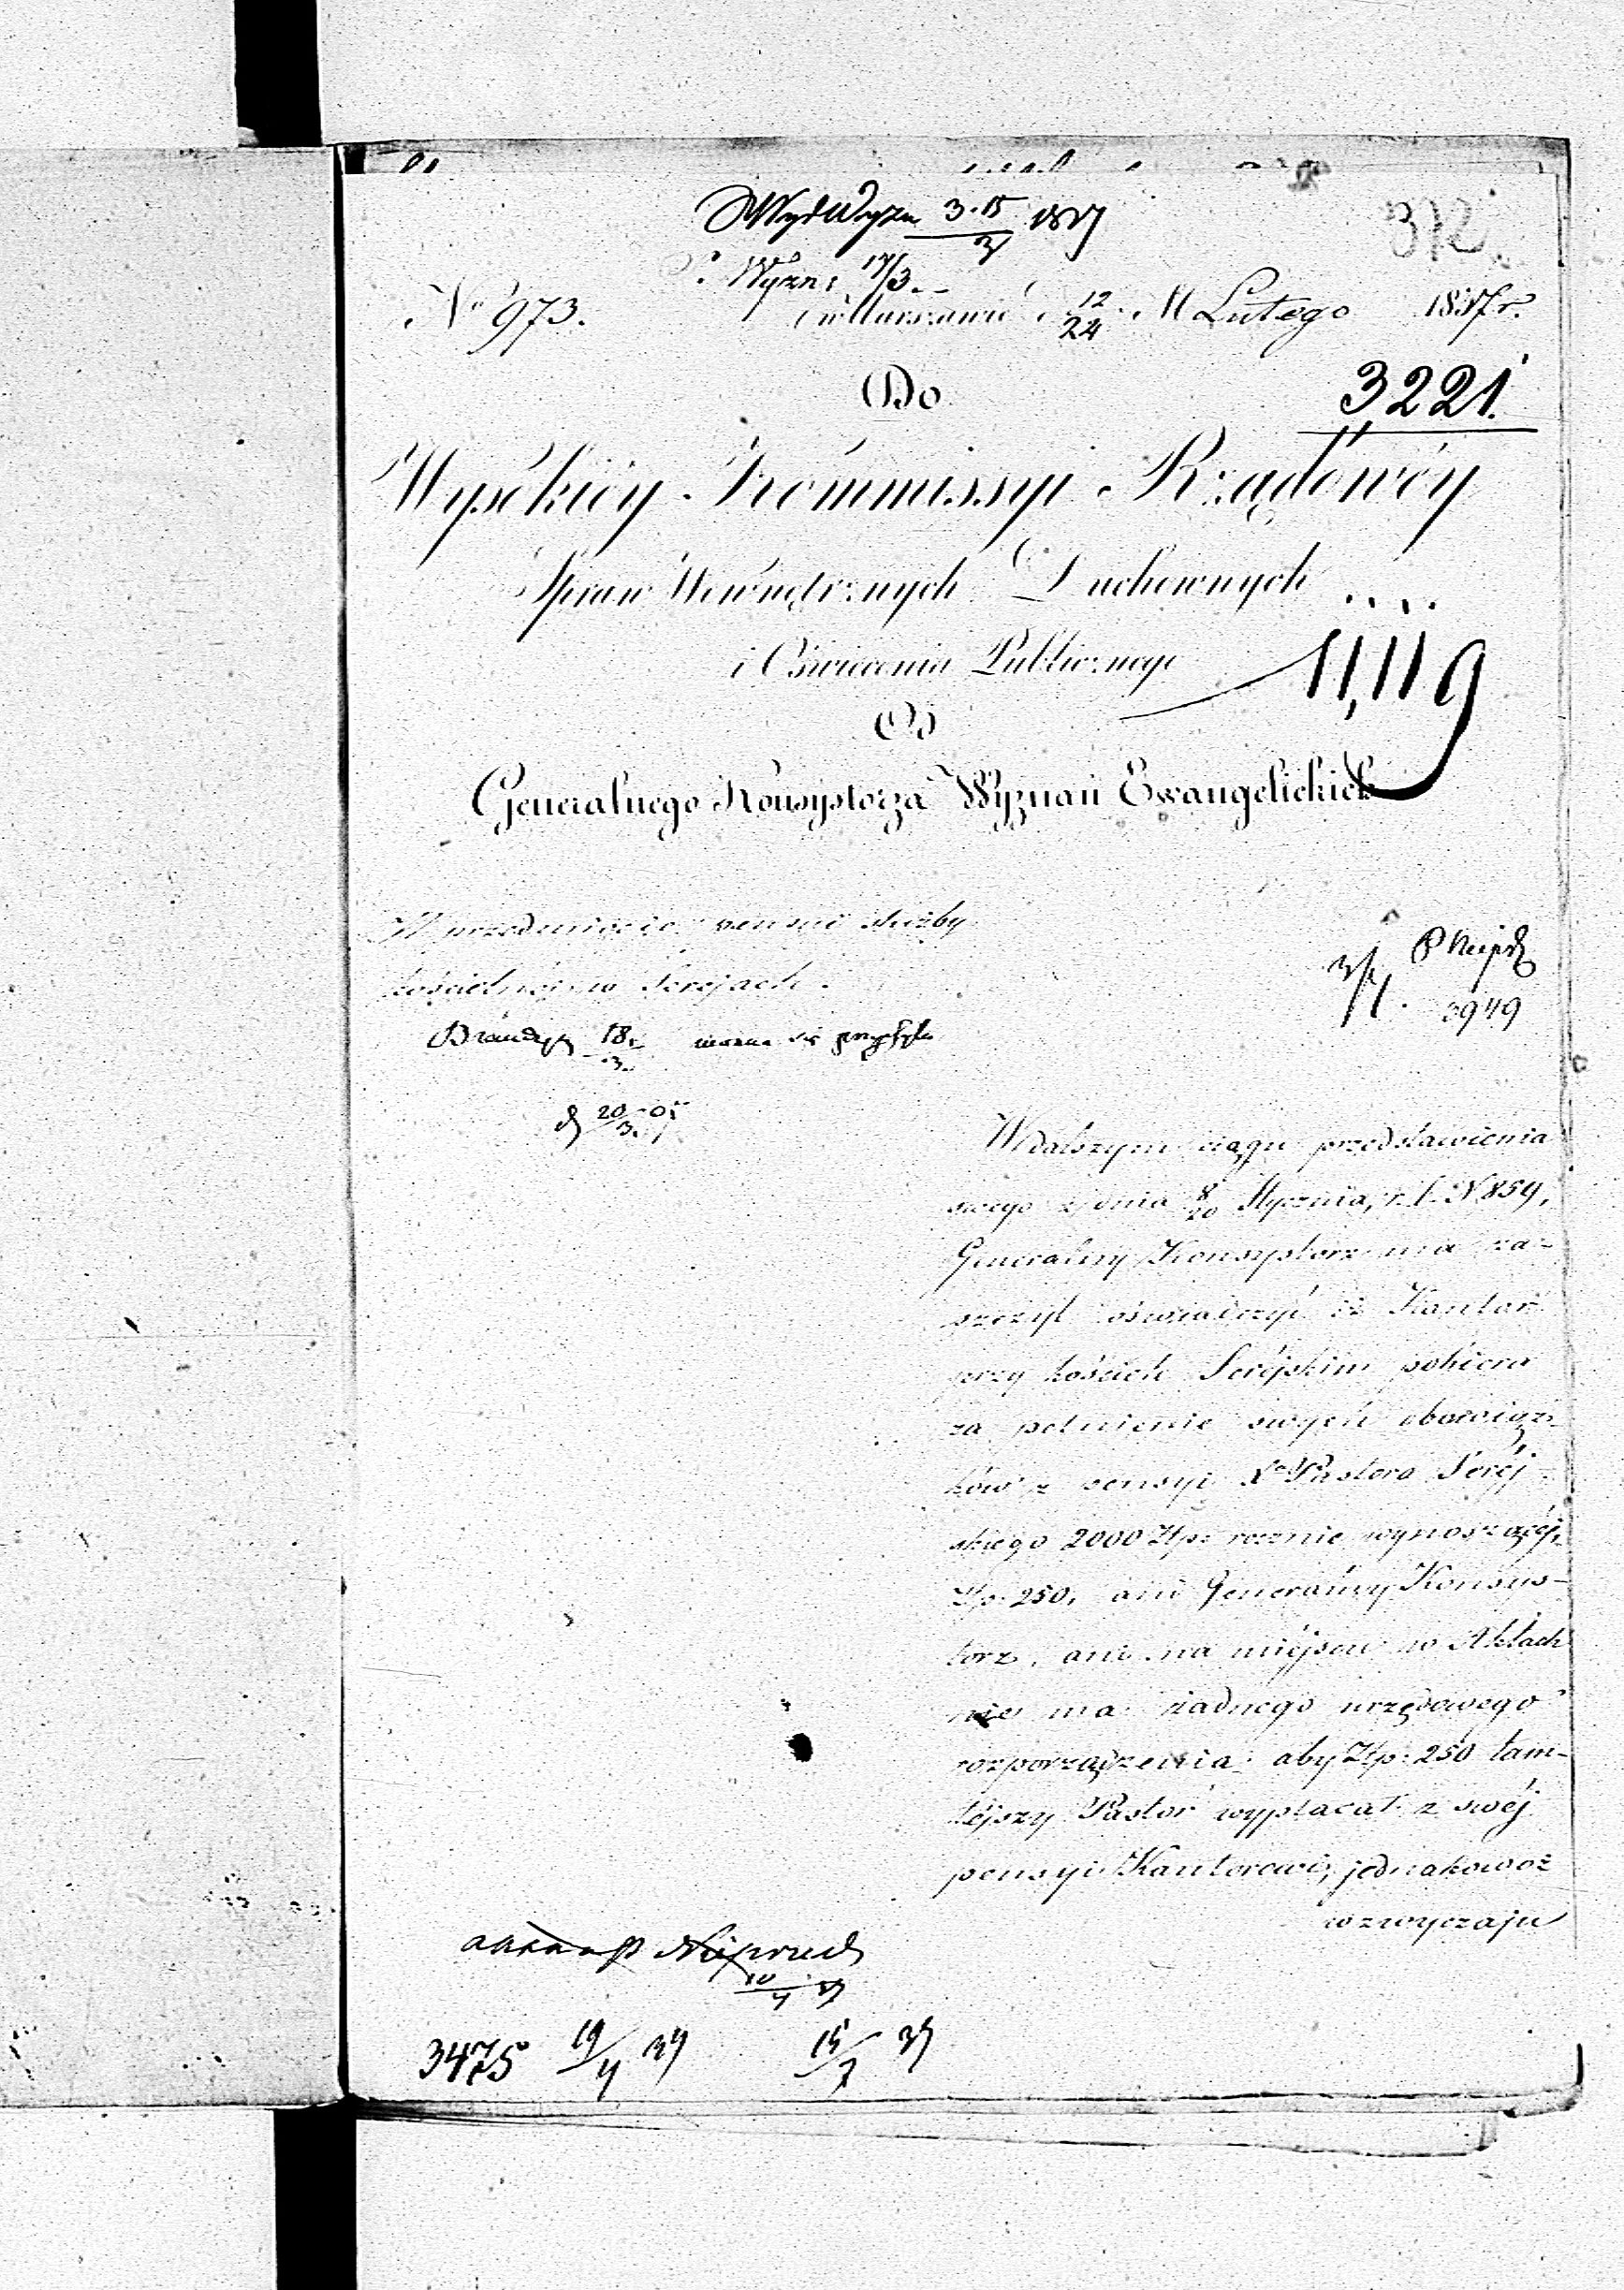 Wyd Wyzn 3.15/3 1837
372
Wyzn: 17/3
No 973. w Warszawie d. 12/24 M Lutego 1837 r.
Do
3221.
Wysokiéy Kommissyi Rządowéy
Spraw Wewnętrznych Duchownych
i Oświecenia Publicznego
11,119
Od
Generalnego Konsystorza Wyznań Ewangelickich
W przedmiocie pensui służby
kościelnéj w Serejach.
3/4.
3949
18/3
20/3
W dalszym ciągu przedstawienia
swego z dnia 8/20 Stycznia, r. b. N 859,
Generalny Konsystorz ma za-
szczyt oświadczyć iż Kantor
przy kościele Seréjskim pobiera
za pełnienie swych obowiąz-
ków z pensyi Xa Pastora Seréj-
skiego 2000 Złp: rocznie wynoszącéj,
Złp. 250, ani Generalny Konsys-
torz, ani na miéjscu w Aktach
nie ma żadnego urzędowego
rozporządzenia, aby Złp: 250 tam-
téjszy Pastor wypłacał z swéj
pensyi Kantorowi, jednakowoż
w zwyczaju
3475 19/4 37 15/7 37